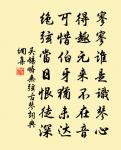 寥寥谁是识琴心
得趣元来不在音
可惜伯牙犹未达
绝弦当日恨徒深
吴锡畴无弦古琴词典
调集